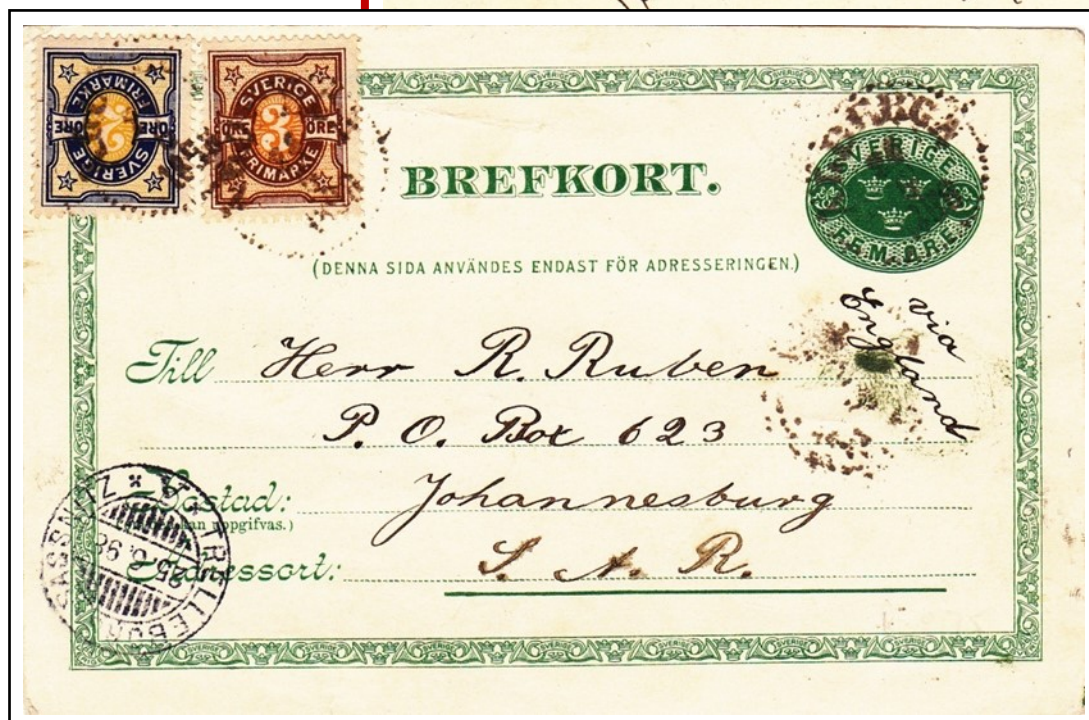 SVERIGE
2
ÖRE ÖRE
FRIMÄRKE
SVERIGE
3
ÖRE ÖRE
FRIMÄRKE
BREFKORT.
SVERIGE
FEM. ÖRE
(DENNA SIDA ANVÄNDES ENDAST FÖR ADRESSERINGEN.)
via
England
Till Herr R. Ruben
P. O. Box 623
Bostad: Johannesburg
kan uppgifvas.)
Adressort: S. A. R.
SASSNITZ * A * TRELLEBORG